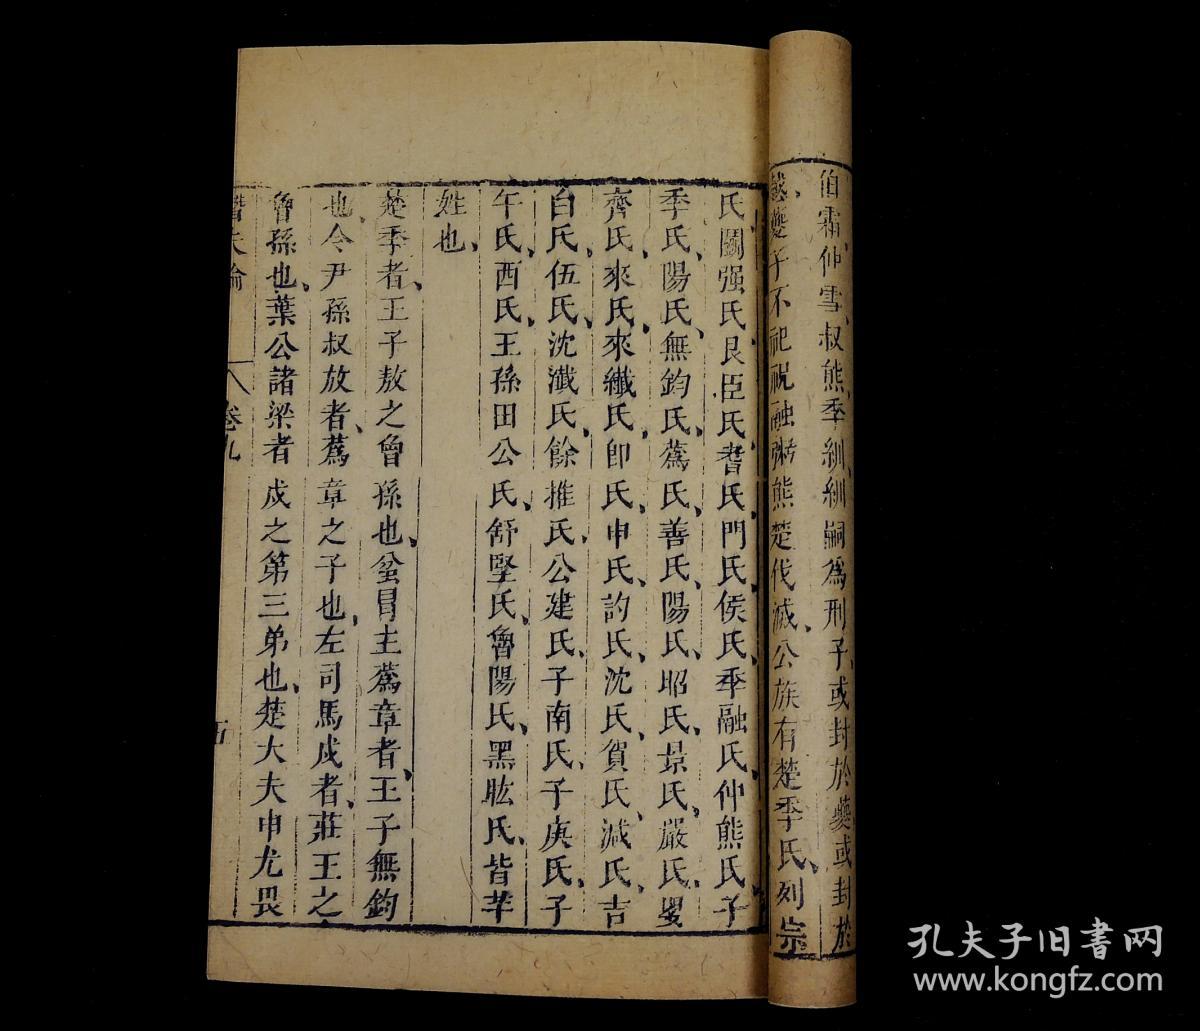 伯霜仲雪叔熊季紃紃嗣爲刑子或封於夔或封於
越夔子不祀祝融粥熊楚伐滅公族有楚季氏列宗
氏鬭强氏艮臣氏耆氏門氏侯氏季融氏仲熊氏子
季氏陽氏無鈞氏蒍氏善氏陽氏昭氏景氏嚴氏嬰
齊氏來氏來纖氏卽氏申氏訋氏沈氏賀氏減氏吉
白氏伍氏沈瀸氏餘推氏公建氏子南氏子庚氏子
午氏西氏王孫田公氏舒堅氏魯陽氏黑肱氏皆芊
姓也
楚季者王子敖之曾孫也蚠冒主蒍章者王子無鈞
也令尹孫叔放者蒍章之子也左司馬戍者莊王之
曾孫也葉公諸梁者戍之第三弟也楚大夫申尤畏
潛夫論
卷九
五
孔夫子旧书网
www.kongfz.com